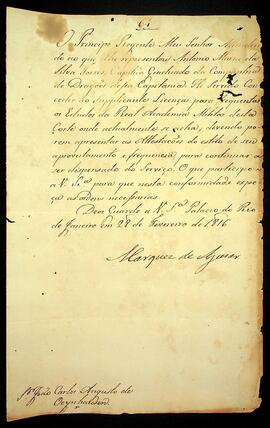 61
O Principe Regente Meu Senhor Attenden
do ao que lhe representou Antonio Maria da
Silva Torres, Capitão Graduado da Companhia
de Dragões dessa Capitania: He Servido Con
ceder ao Supplicante Licença para frequentar
os Estudos da Real Academia Militar desta
Corte onde actualmente se acha, devendo po
rem apresentar as Attestações do estilo de seu
aproveitamento e frequencia, para continuar a
ser dispensado do Serviço. O que participo
a V. S.ª para que nesta conformidade expe
ça as ordens necessarias.
Deos Guarde a V. S.ª Palacio do Rio
de Janeiro em 28 de Fevereiro de 1816
Marquez de Aguiar
Sr. João Carlos Augusto de
Oeynhausen.